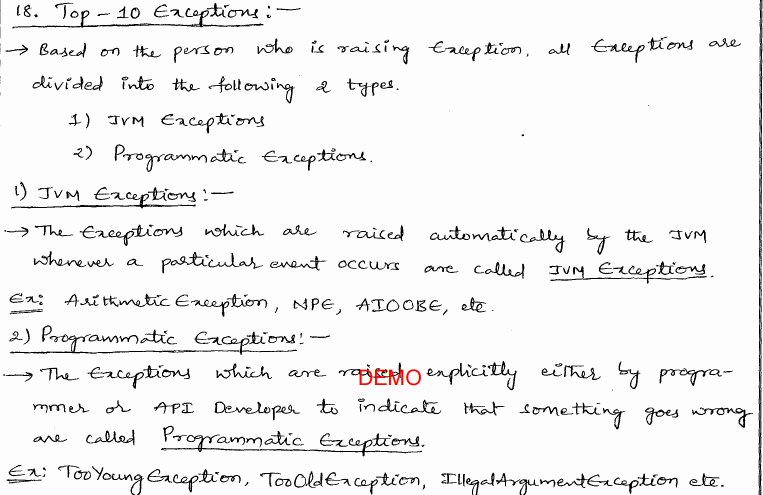 18. Top-10 Exceptions:-
→ Based on the person who is raising Exception, all Exceptions are
divided into the following 2 types.
1) JVM Exceptions
2) Programmatic Exceptions.
1) JVM Exceptions:-
→ The Exceptions which are raised automatically by the JVM
whenever a particular event occurs are called JVM Exceptions.
Ex: Arithmetic Exception, NPE, AIOOBE, etc.
2) Programmatic Exceptions:-
→ The Exceptions which are raised explicitly either by progra-
DEMO
mmer or API Developer to indicate that something goes wrong
are called Programmatic Exceptions.
Ex: TooYoungException, TooOldException, IllegalArgumentException etc.